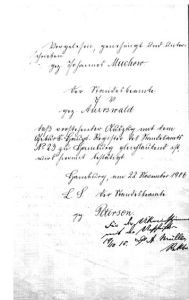 Vorgelesen, genehmigt und unter-
schrieben
gez Johannes Muchow
Der Standesbeamte
J V
gez Auerswald
daß vorstehender Auszug mit dem
Geburts Haupt Register des Standesamts
No 23 zu Hamburg gleichlautend ist
wird hiermit bestätigt
Hamburg, am 22 November 1906
L S Der Standesbeamte
JV Petersen
Für die
mit der
Müller